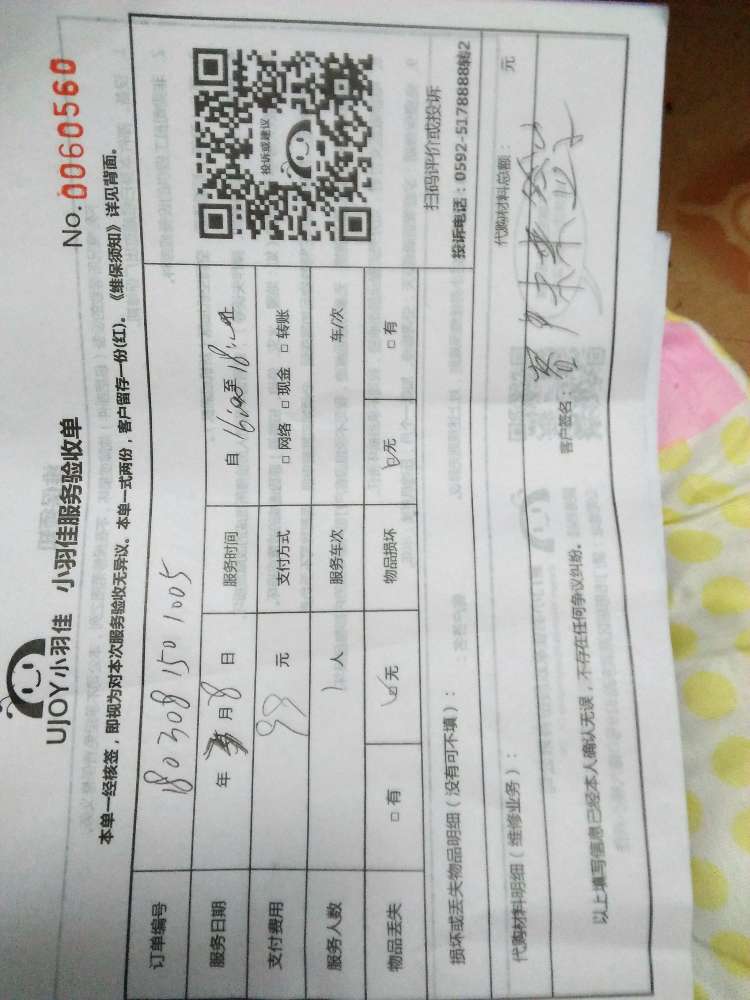 UJOY小羽佳 小羽佳服务验收单
No.0060560
本单一经核签，即视为对本次服务验收无异议。本单一式两份，客户留存一份(红)。《维保须知》详见背面。
订单编号 1803081501005
服务日期 年 月 8 日 服务时间 自 16:00 至 18:00 止
支付费用 98 元 支付方式 □ 网络 □ 现金 □ 转账
服务人数 1 人 服务车次 车/次
物品丢失 □ 有 □ 无 物品损坏 □ 无 □ 有
投诉或建议
扫码评价或投诉
投诉电话：0592-5178888转2
损坏或丢失物品明细（没有可不填）：
代购材料明细（维修业务）： 代购材料总额： 元
以上填写信息已经本人确认无误，不存在任何争议纠纷。 客户签名：